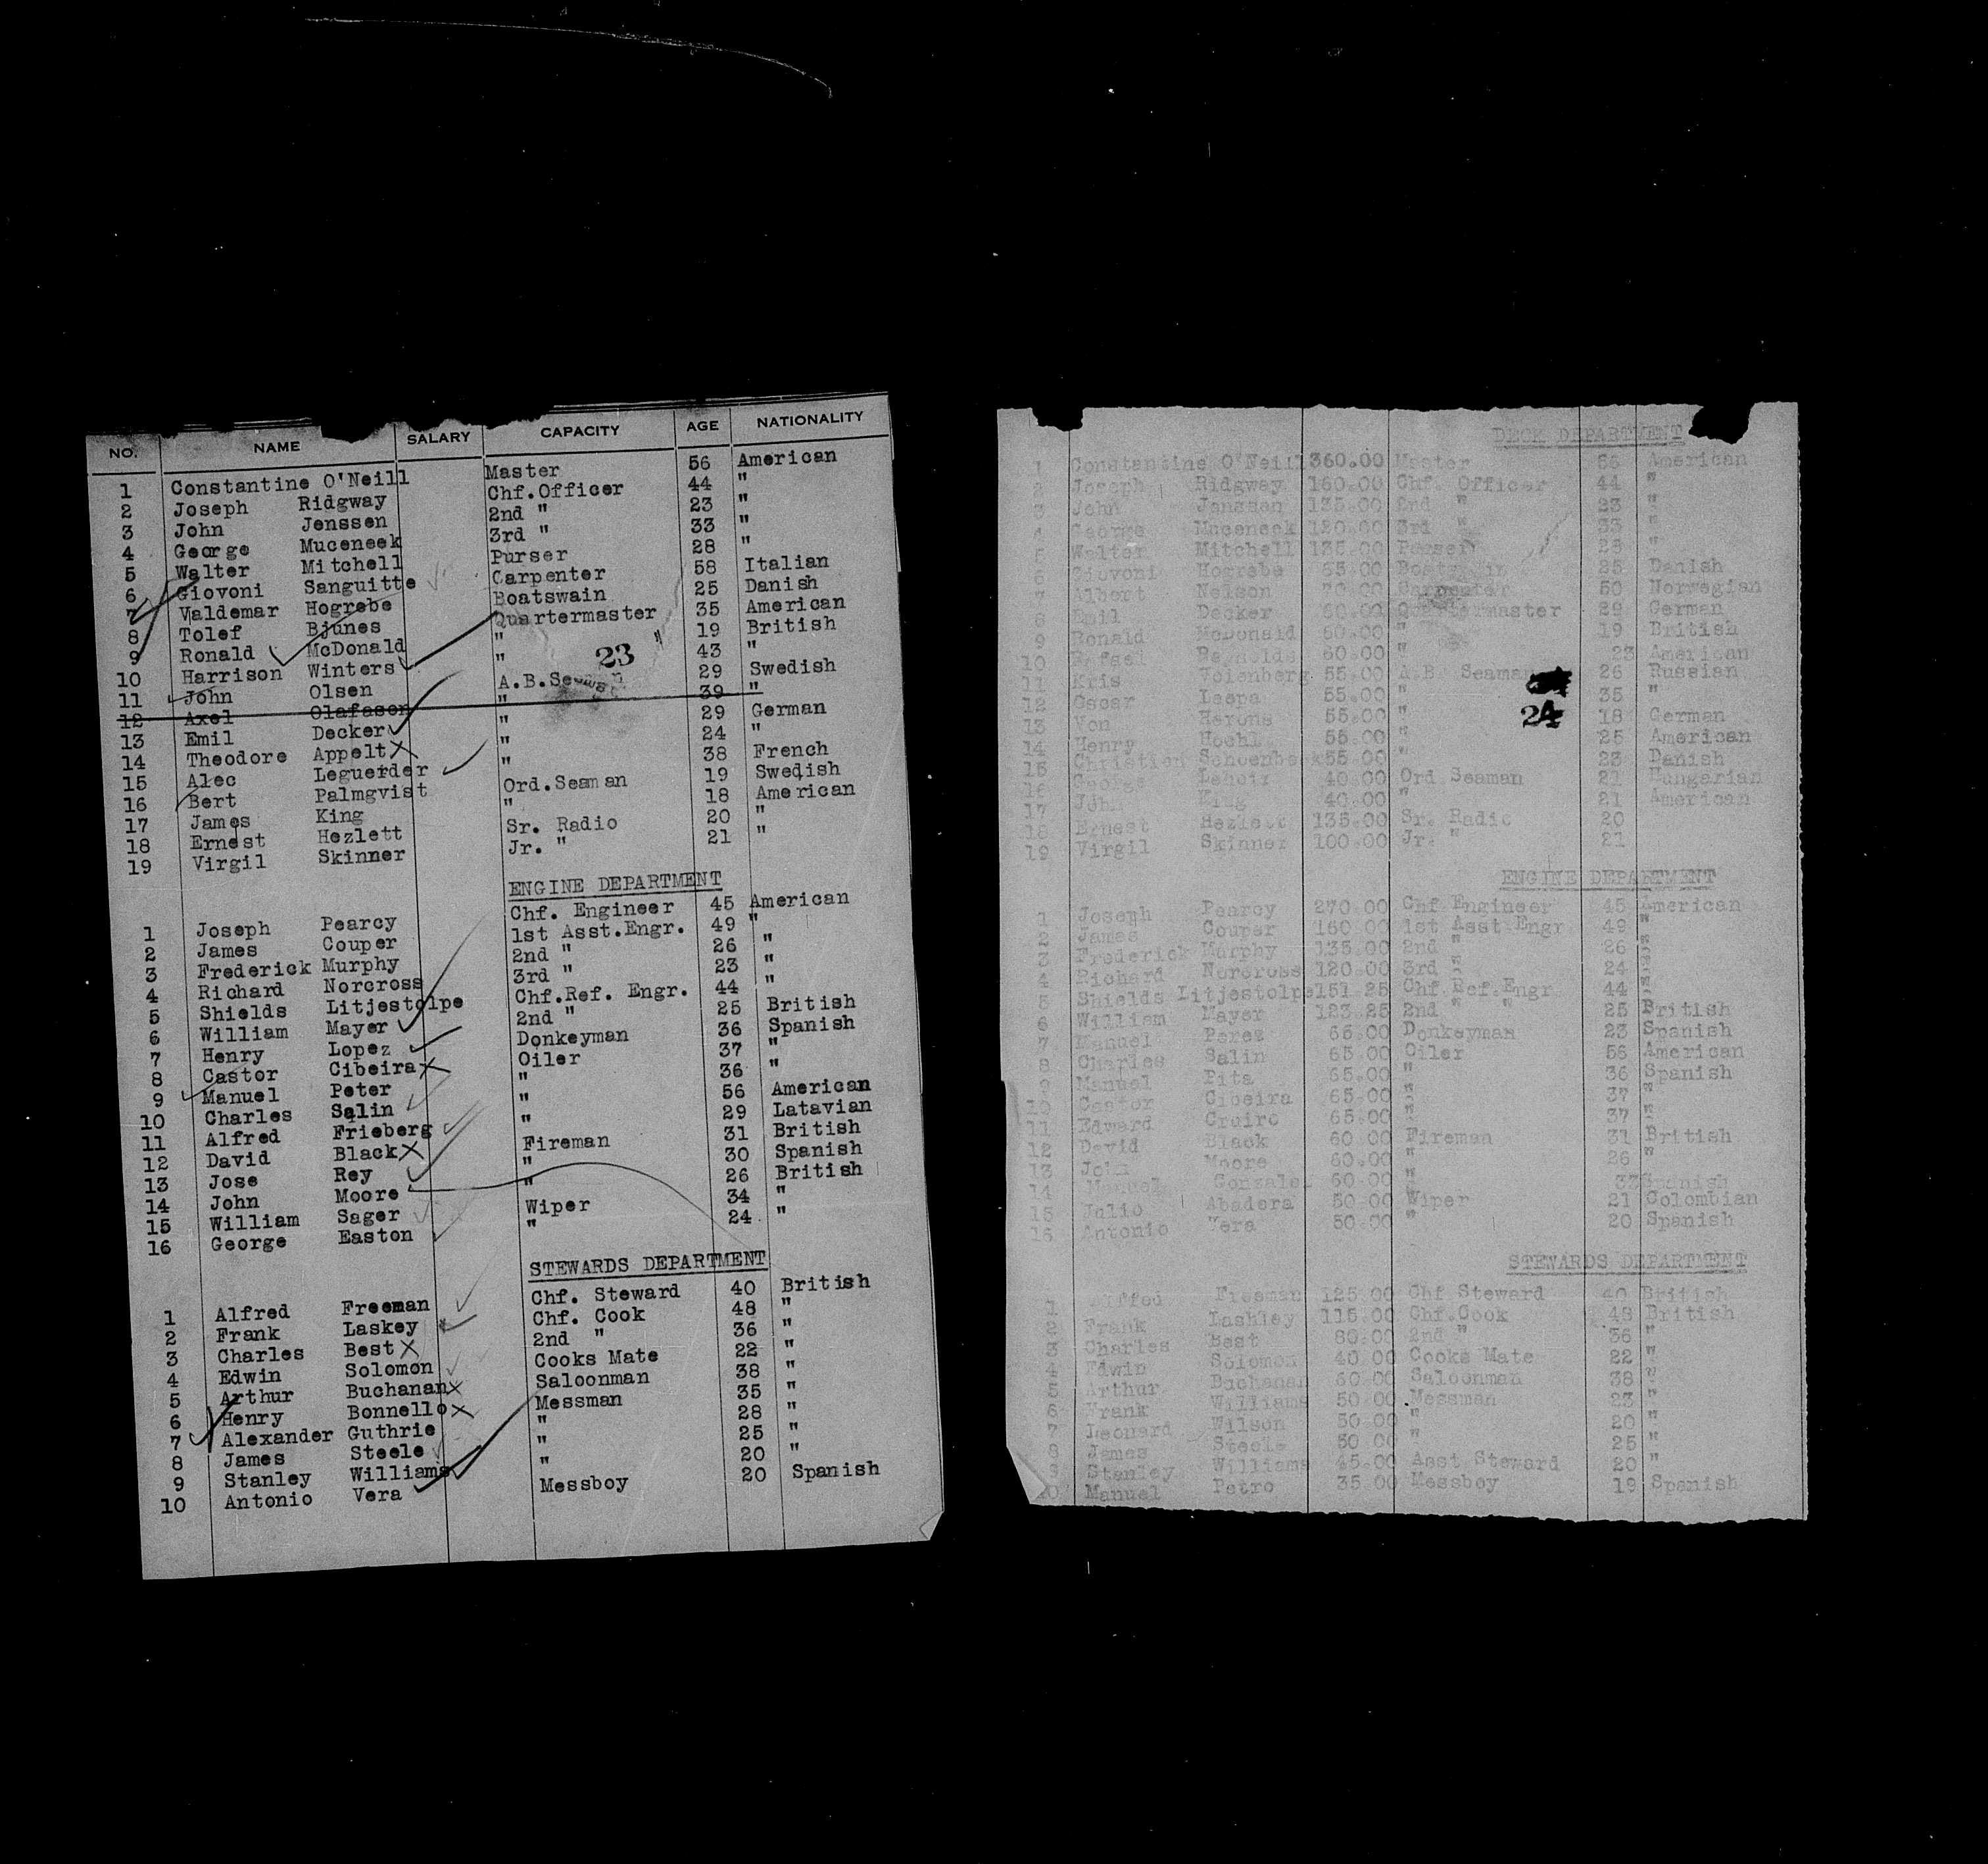 NO. NAME SALARY CAPACITY AGE NATIONALITY
1 Constantine O'Neill Master 56 American
2 Joseph Ridgway Chf.Officer 44 "
3 John Jenssen 2nd " 23 "
4 George Muceneek 3rd " 33 "
5 Walter Mitchell Purser 28 "
6 Giovoni Sanguitte Carpenter 58 Italian
7 Valdemar Hogrebe Boatswain 25 Danish
8 Tolef Bjunes Quartermaster 35 American
9 Ronald McDonald " 19 British
10 Harrison Winters " 43 "
23 "
11 John Olsen A.B.Seaman 29 Swedish
12 Axel Olafason " 39 "
13 Emil Decker " 29 German
14 Theodore Appelt " 24 "
15 Alec Leguerder " 38 French
16 Bert Palmgvist Ord.Seaman 19 Swedish
17 James King " 18 American
18 Ernest Hezlett Sr. Radio 20 "
19 Virgil Skinner Jr. " 21 "
ENGINE DEPARTMENT
1 Joseph Pearcy Chf. Engineer 45 American
2 James Couper 1st Asst.Engr. 49 "
3 Frederick Murphy 2nd " 26 "
4 Richard Norcross 3rd " 23 "
5 Shields Litjestolpe Chf.Ref. Engr. 44 "
6 William Mayer 2nd " 25 British
7 Henry Lopez Donkeyman 36 Spanish
8 Castor Cibeira Oiler 37 "
9 Manuel Peter " 36 "
10 Charles Salin " 56 American
11 Alfred Frieberg " 29 Latavian
12 David Black Fireman 31 British
13 Jose Rey " 30 Spanish
14 John Moore " 26 British
15 William Sager Wiper 34 "
16 George Easton " 24 "
STEWARDS DEPARTMENT
1 Alfred Freeman Chf. Steward 40 British
2 Frank Laskey Chf. Cook 48 "
3 Charles Best 2nd " 36 "
4 Edwin Solomon Cooks Mate 22 "
5 Arthur Buchanan Saloonman 38 "
6 Henry Bonnello Messman 35 "
7 Alexander Guthrie " 28 "
8 James Steele " 25 "
9 Stanley Williams " 20 "
10 Antonio Vera Messboy 20 Spanish
DECK DEPARTMENT
1 Constantine O'Neill 360.00 Master 56 American
2 Joseph Ridgway 160.00 Chf. Officer 44 "
3 John Janssen 135.00 2nd " 23 "
4 George Muceneek 120.00 3rd " 33 "
5 Walter Mitchell 135.00 Purser 28 "
6 Giovoni Hogrebe 65.00 Boatswain 25 Danish
7 Albert Nelson 70.00 Carpenter 50 Norwegian
8 Emil Decker 60.00 Quartermaster 29 German
9 Ronald McDonald 60.00 " 19 British
10 Rafael Reynolds 60.00 " 23 American
11 Kris 55.00 A.B. Seaman 26 Russian
12 Oscar Laepa 55.00 " 35 "
24
13 Von Harons 55.00 " 18 German
14 Henry Hoehl 55.00 " 25 American
15 Christian 55.00 " 23 Danish
16 George 40.00 Ord. Seaman 21 Hungarian
17 John King 40.00 " 21 American
18 Ernest Hezlett 135.00 Sr. Radio 20
19 Virgil Skinner 100.00 Jr. " 21
ENGINE DEPARTMENT
1 Joseph Pearcy 270.00 Chf Engineer 45 American
2 James Couper 160.00 1st Asst Engr 49 "
3 Frederick Murphy 135.00 2nd " 26 "
4 Richard Norcross 120.00 3rd " 24 "
5 Shields Litjestolpe 151.25 Chf.Ref.Engr 44 "
6 William Mayer 123.25 2nd " " 25 British
7 Manuel Perez 65.00 Donkeyman 23 Spanish
8 Charles Salin 65.00 Oiler 56 American
9 Manuel Pita 65.00 " 36 Spanish
10 Castor Cibeira 65.00 " 37 "
11 Edward Cruiro 65.00 " 37 "
12 David Black 60.00 Fireman 31 British
13 John Moore 60.00 " 26 "
14 Manuel Gonzales 60.00 " 33 Spanish
15 Julio Abadera 50.00 Wiper 21 Colombian
16 Antonio Vera 50.00 " 20 Spanish
STEWARDS DEPARTMENT
1 Freeman 125.00 Chf Steward 40 British
2 Frank Lashley 115.00 Chf.Cook 48 British
3 Charles Best 80.00 2nd " 36 "
4 Edwin Solomon 40.00 Cooks Mate 22 "
5 Arthur Buchanan 60.00 Saloonman 38 "
6 Frank Williams 50.00 Messman 23 "
7 Leonard Wilson 50.00 " 20 "
8 James Steele 50 00 " 25 "
9 Stanley Williams 45.00 Asst Steward 20 "
10 Manuel Petro 35.00 Messboy 19 Spanish